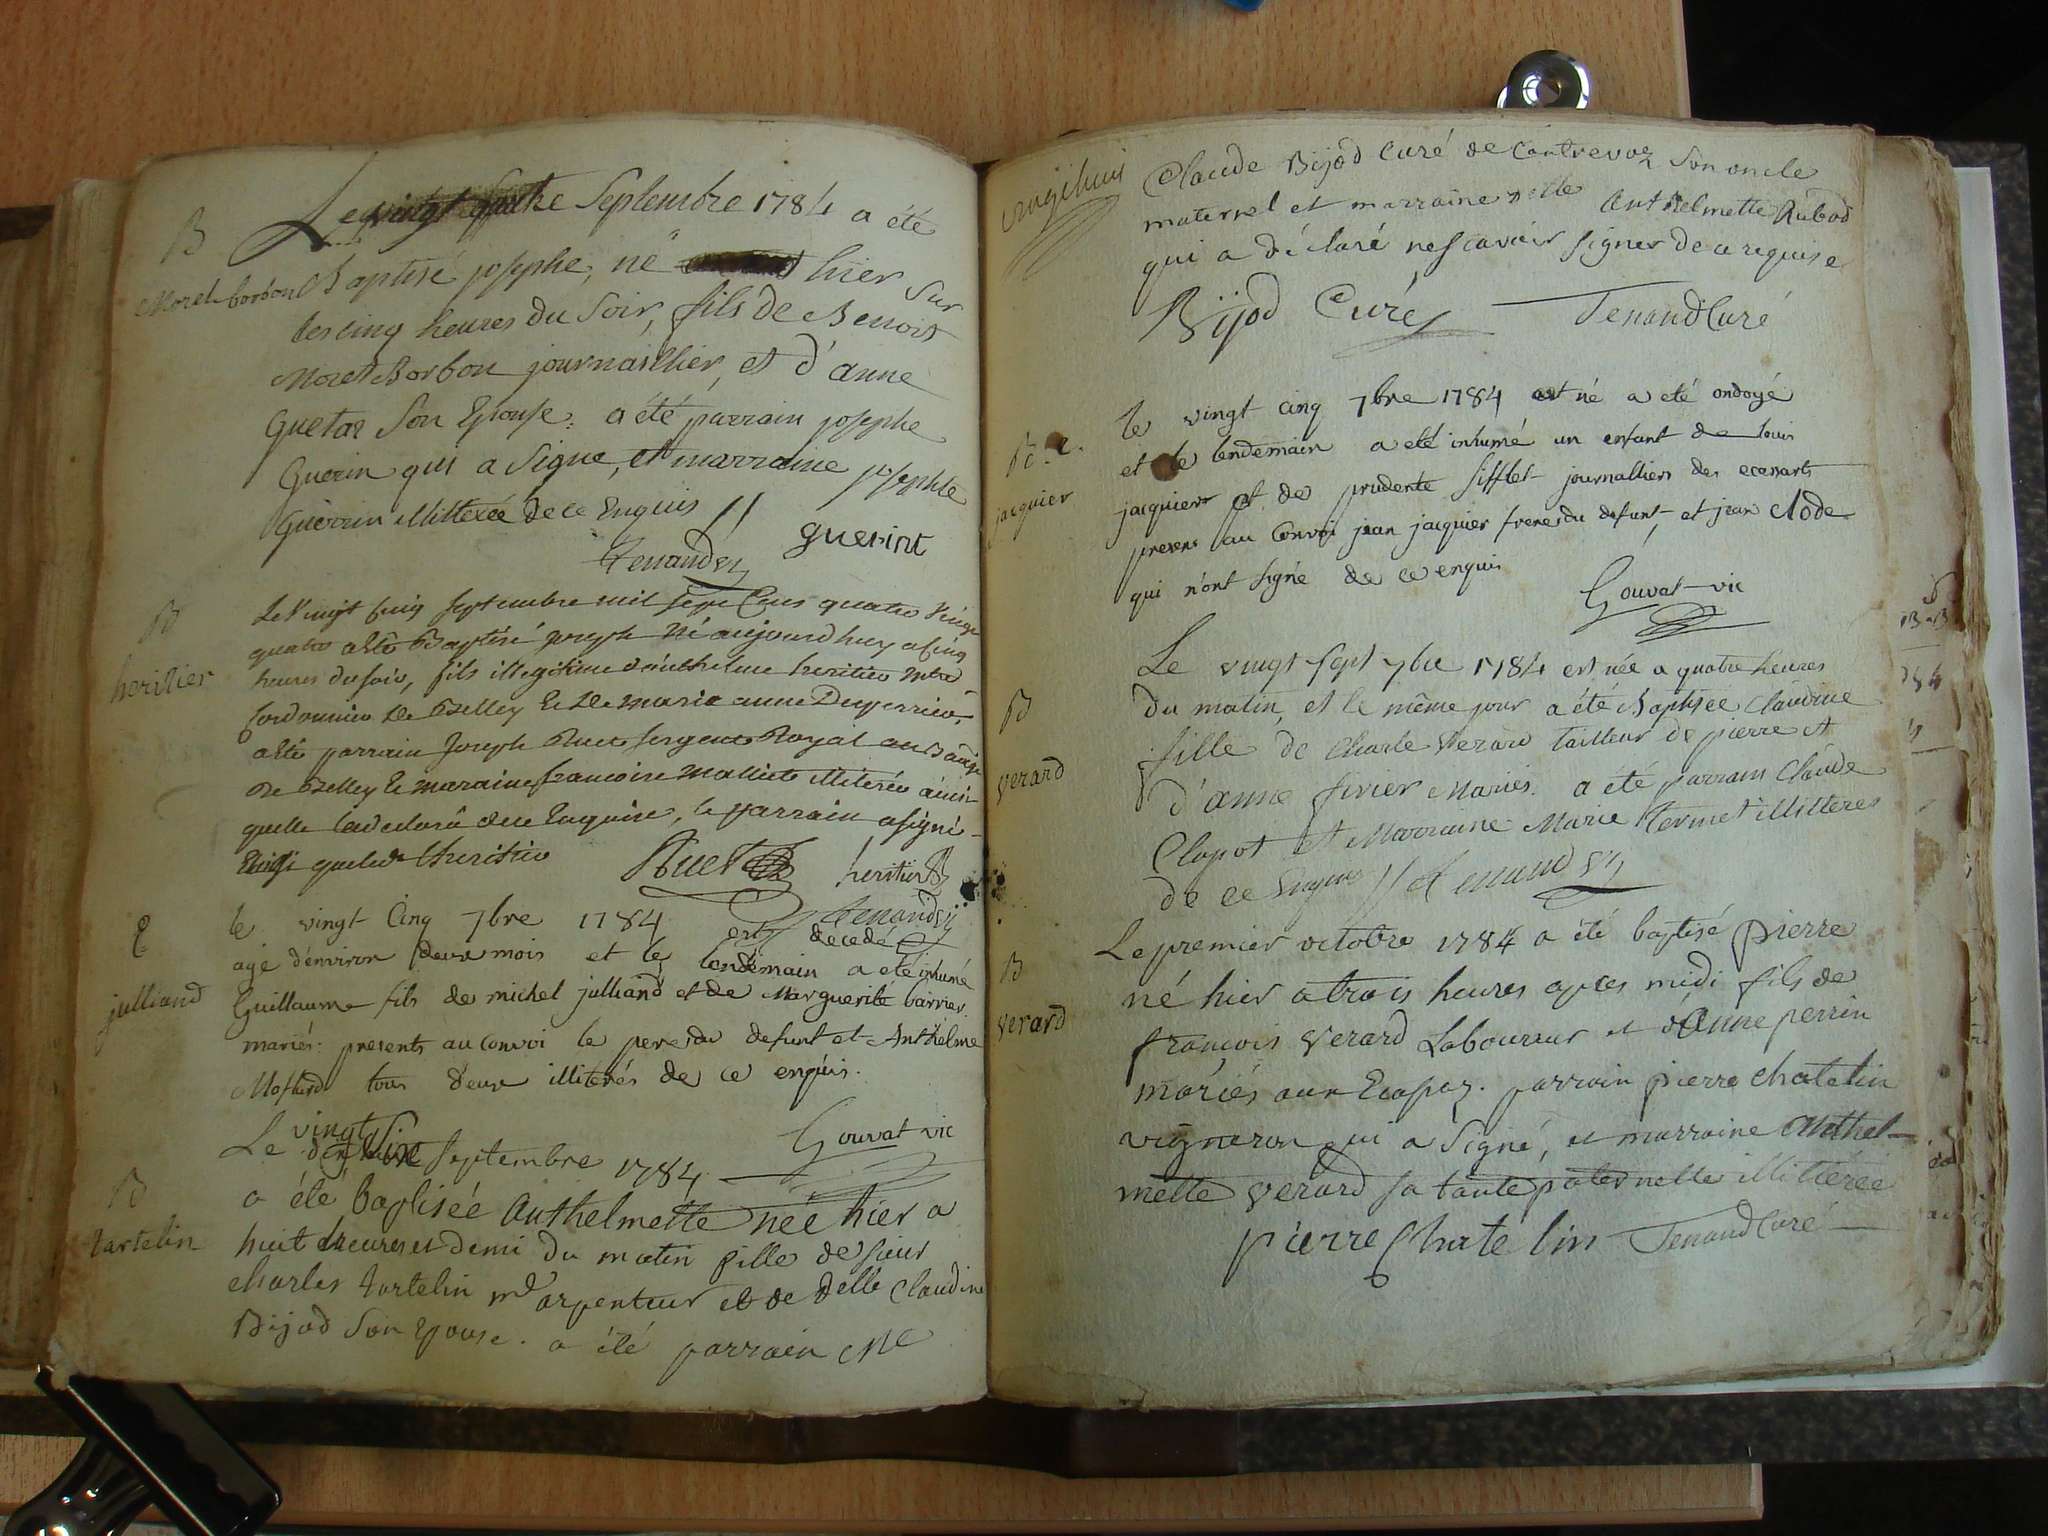 B
Moret borbon
Le vingt quatre Septembre 1784 a été
Baptisé josephe, né hier sur
les cinq heures du Soir, fils de Benoit
Moret Borbon journaillier, et d'anne
Guetaz Son Epouse: a été parrain josephe
Guerin qui a Signe, et marraine josephte
Guerrin illitteree de ce Enquis //
Tenand guerint
B
heritier
Le Vingt cinq septembre mil sept Cens quatre Vingt
quatre a été Baptisé joseph Né aujourd huy a cinq
heures du soir, fils illegitime d'anthelme heritier Mtre
Cordonnier de Belley & de marie anne Duperrier,
a été parrain Joseph Ruet sergent Royal au Bailge
de Belley & maraine francoise Malliet illiterée ainsi
quelle la declaré de ce Enquise, le parrain a signé
Ruet heritier
Tenand
E
julliand
le vingt Cinq 7bre 1784 est décedé
agé d'environ deux mois et le lendemain a eté inhumé
Guillaume fils de michel julliand et de Marguerite barrier
mariés: presents au Convoi le pere du defunt et Anthelme
tous deux illiterés de ce enquis.
Gouvat vic
B
tartelin
Le vingt Six Septembre 1784
a été baptisée Anthelmette née hier a
huit heures et demi du matin fille de sieur
charles tartelin md arpenteur et de delle Claudine
Bijod Son epouse. a été parrain Mre
Claude Bijod Curé de Contrevoz Son oncle
maternel et marraine delle Anthelmette Rubod
qui a déclaré ne scavoir signer de ce requise
Bijod Curé Tenand Curé
jacquier
le vingt Cinq 7bre 1784 est né a eté ondoyé
et le lendemain a eté inhumé un enfant de louis
jacquier et de prudente sifflet journalliers des ecassarts
presens au Convoi jean jacquier frere du defunt, et jean clode
qui n'ont signé de ce enquis
Gouvat vic
B
verard
Le vingt sept 7bre 1784 est née a quatre heures
du matin, et le même jour a été Baptisée Claudine
fille de Charle Verard tailleur de pierre et
d'anne fivier Mariés. a été parrain Claude
Clapot et Marraine Marie termet illitteres
de ce Enquis // Tenand
B
verard
Le premier octobre 1784 a été baptisé pierre
né hier a trois heures apres midi fils de
françois Verard Laboureur et d'Anne perrin
mariés aux Ecassaz. parrain pierre Chatelin
vigneron qui a Signé, et marraine Anthel-
mette Verard sa tante paternelle illitérée
pierre Chatelin Tenand Curé